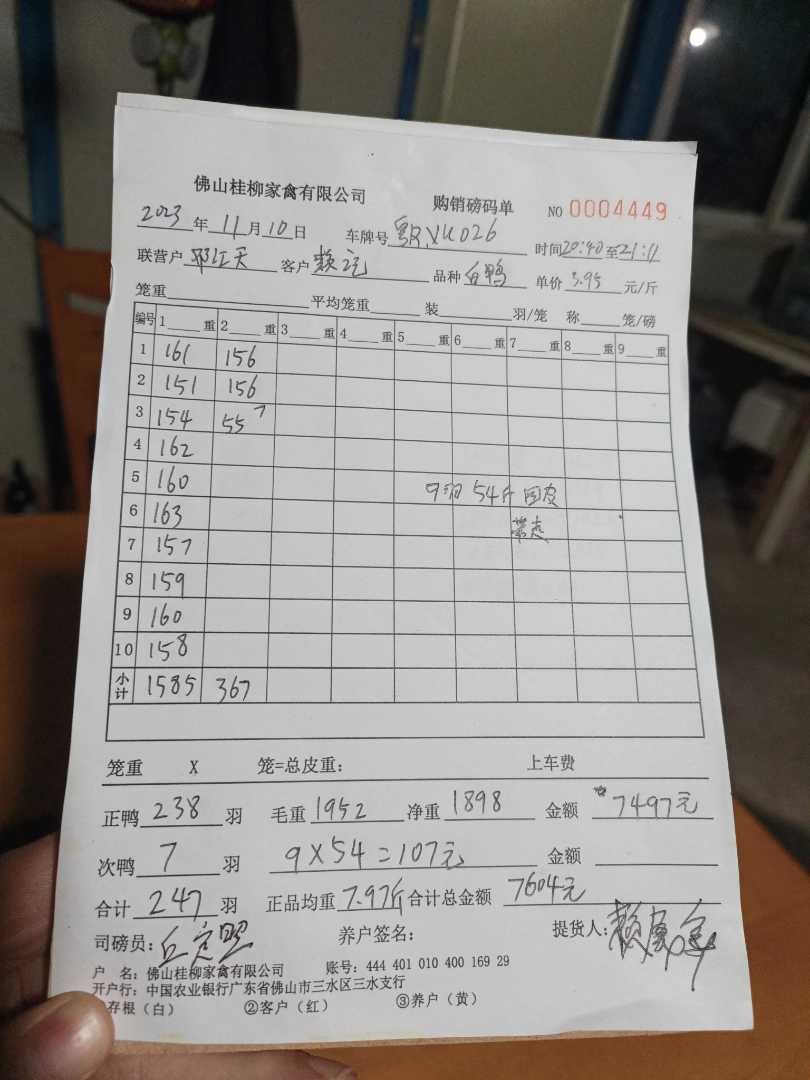 佛山桂柳家禽有限公司 购销磅码单 NO 0004449
2023 年 11 月 10 日 车牌号 026 时间 20:40 至 21:11
联营户 客户 赖 品种 白鸭 单价 3.95 元/斤
笼重 平均笼重 装 羽/笼 称 笼/磅
编号 1 重 2 重 3 重 4 重 5 重 6 重 7 重 8 重 9 重
1 161 156
2 151 156
3 154 55 7
4 162
5 160 9羽 54斤
6 163
7 157
8 159
9 160
10 158
小计 1585 367
笼重 X 笼=总皮重: 上车费
正鸭 238 羽 毛重 1952 净重 1898 金额 7497元
次鸭 7 羽 9×54=107元 金额
合计 247 羽 正品均重 7.97斤 合计总金额 7604元
司磅员: 丘 养户签名: 提货人: 赖
户 名: 佛山桂柳家禽有限公司 账号: 444 401 010 400 169 29
开户行: 中国农业银行广东省佛山市三水区三水支行
存根(白) ②客户(红) ③养户(黄)